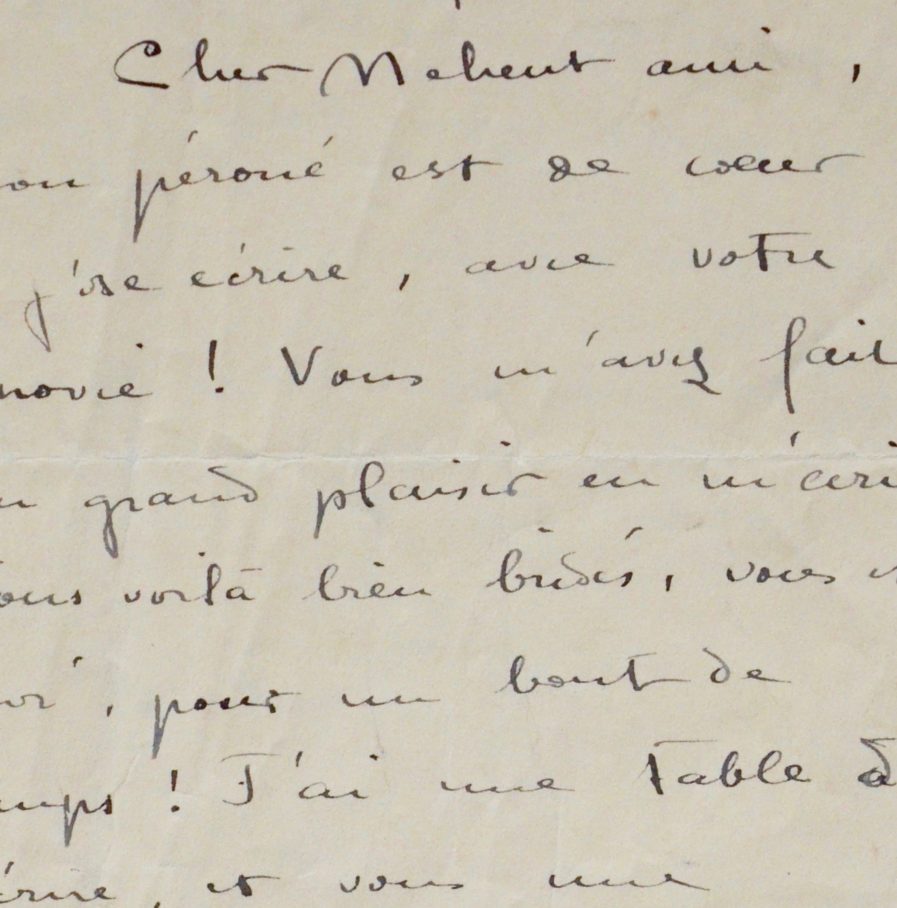 Cher Mehent ami,
on péroné est de cœur
j'ose écrire, avec votre
novie ! Vous m'avez fait
grand plaisir en m'écri
ous voilà bien bridés, vous
pour un bout de
mps ! J'ai une table à
crire, et vous une